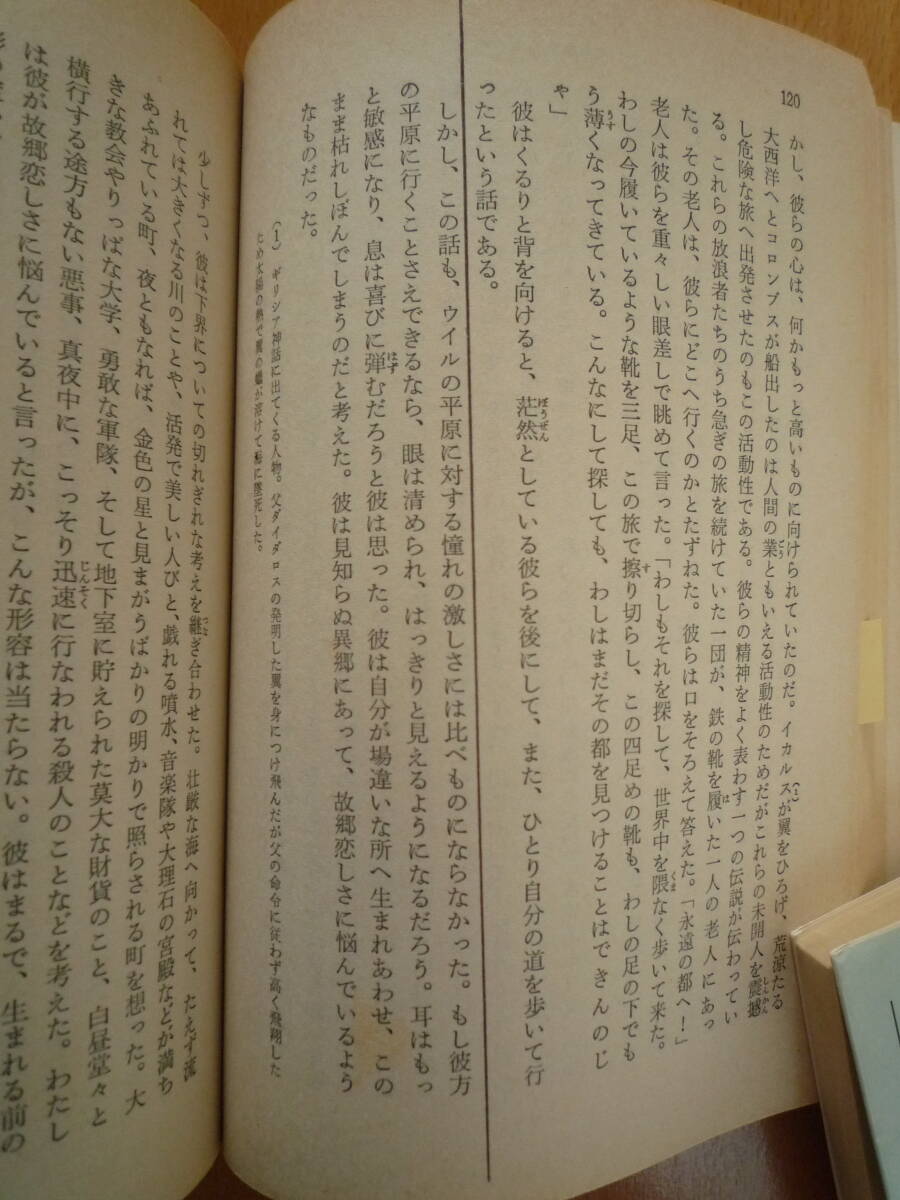 120
かし、彼らの心は、何かもっと高いものに向けられていたのだ。イカルスが翼をひろげ、荒涼たる
大西洋へとコロンブスが船出したのは人間の業ともいえる活動性のためだがこれらの未開人を震撼
し危険な旅へ出発させたのもこの活動性である。彼らの精神をよく表わす一つの伝説が伝わってい
る。これらの放浪者たちのうち急ぎの旅を続けていた一団が、鉄の靴を履いた一人の老人にあっ
た。その老人は、彼らにどこへ行くのかとたずねた。彼らは口をそろえて答えた。「永遠の都へ!」
老人は彼らを重々しい眼差しで眺めて言った。「わしもそれを探して、世界中を隈なく歩いて来た。
わしの今履いているような靴を三足、この旅で擦り切らし、この四足めの靴も、わしの足の下でも
う薄くなってきている。こんなにして探しても、わしはまだその都を見つけることはできんのじ
ゃ」
彼はくるりと背を向けると、茫然としている彼らを後にして、また、ひとり自分の道を歩いて行
ったという話である。
しかし、この話も、ウイルの平原に対する憧れの激しさには比べものにならなかった。もし彼方
の平原に行くことさえできるなら、眼は清められ、はっきりと見えるようになるだろう。耳はもっ
と敏感になり、息は喜びに弾むだろうと彼は思った。彼は自分が場違いな所へ生まれあわせ、この
まま枯れしぼんでしまうのだと考えた。彼は見知らぬ異郷にあって、故郷恋しさに悩んでいるよう
なものだった。
(1) ギリシア神話に出てくる人物。父ダイダロスの発明した翼を身につけ飛んだが父の命令に従わず高く飛翔した
ため太陽の熱で翼の蠟が溶けて海に墜死した。
少しずつ、彼は下界についての切れぎれな考えを継ぎ合わせた。壮厳な海へ向かって、たえず流
れては大きくなる川のことや、活発で美しい人びと、戯れる噴水、音楽隊や大理石の宮殿などが満ち
あふれている町、夜ともなれば、金色の星と見まがうばかりの明かりで照らされる町を想った。大
きな教会やりっぱな大学、勇敢な軍隊、そして地下室に貯えられた莫大な財貨のこと、白昼堂々と
横行する途方もない悪事、真夜中に、こっそり迅速に行なわれる殺人のことなどを考えた。わたし
は彼が故郷恋しさに悩んでいると言ったが、こんな形容は当たらない。彼はまるで、生まれる前の